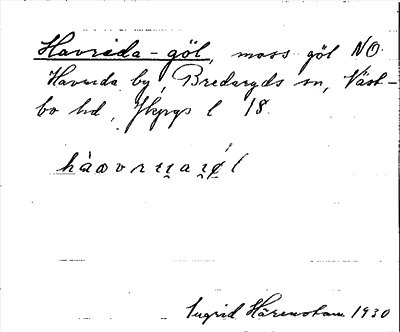 Havrida-göl, mossgöl NO
Havrida by, Bredaryds sn, Väst-
bo hd, Jkpgs l 18.
Ingrid Härenstam 1930